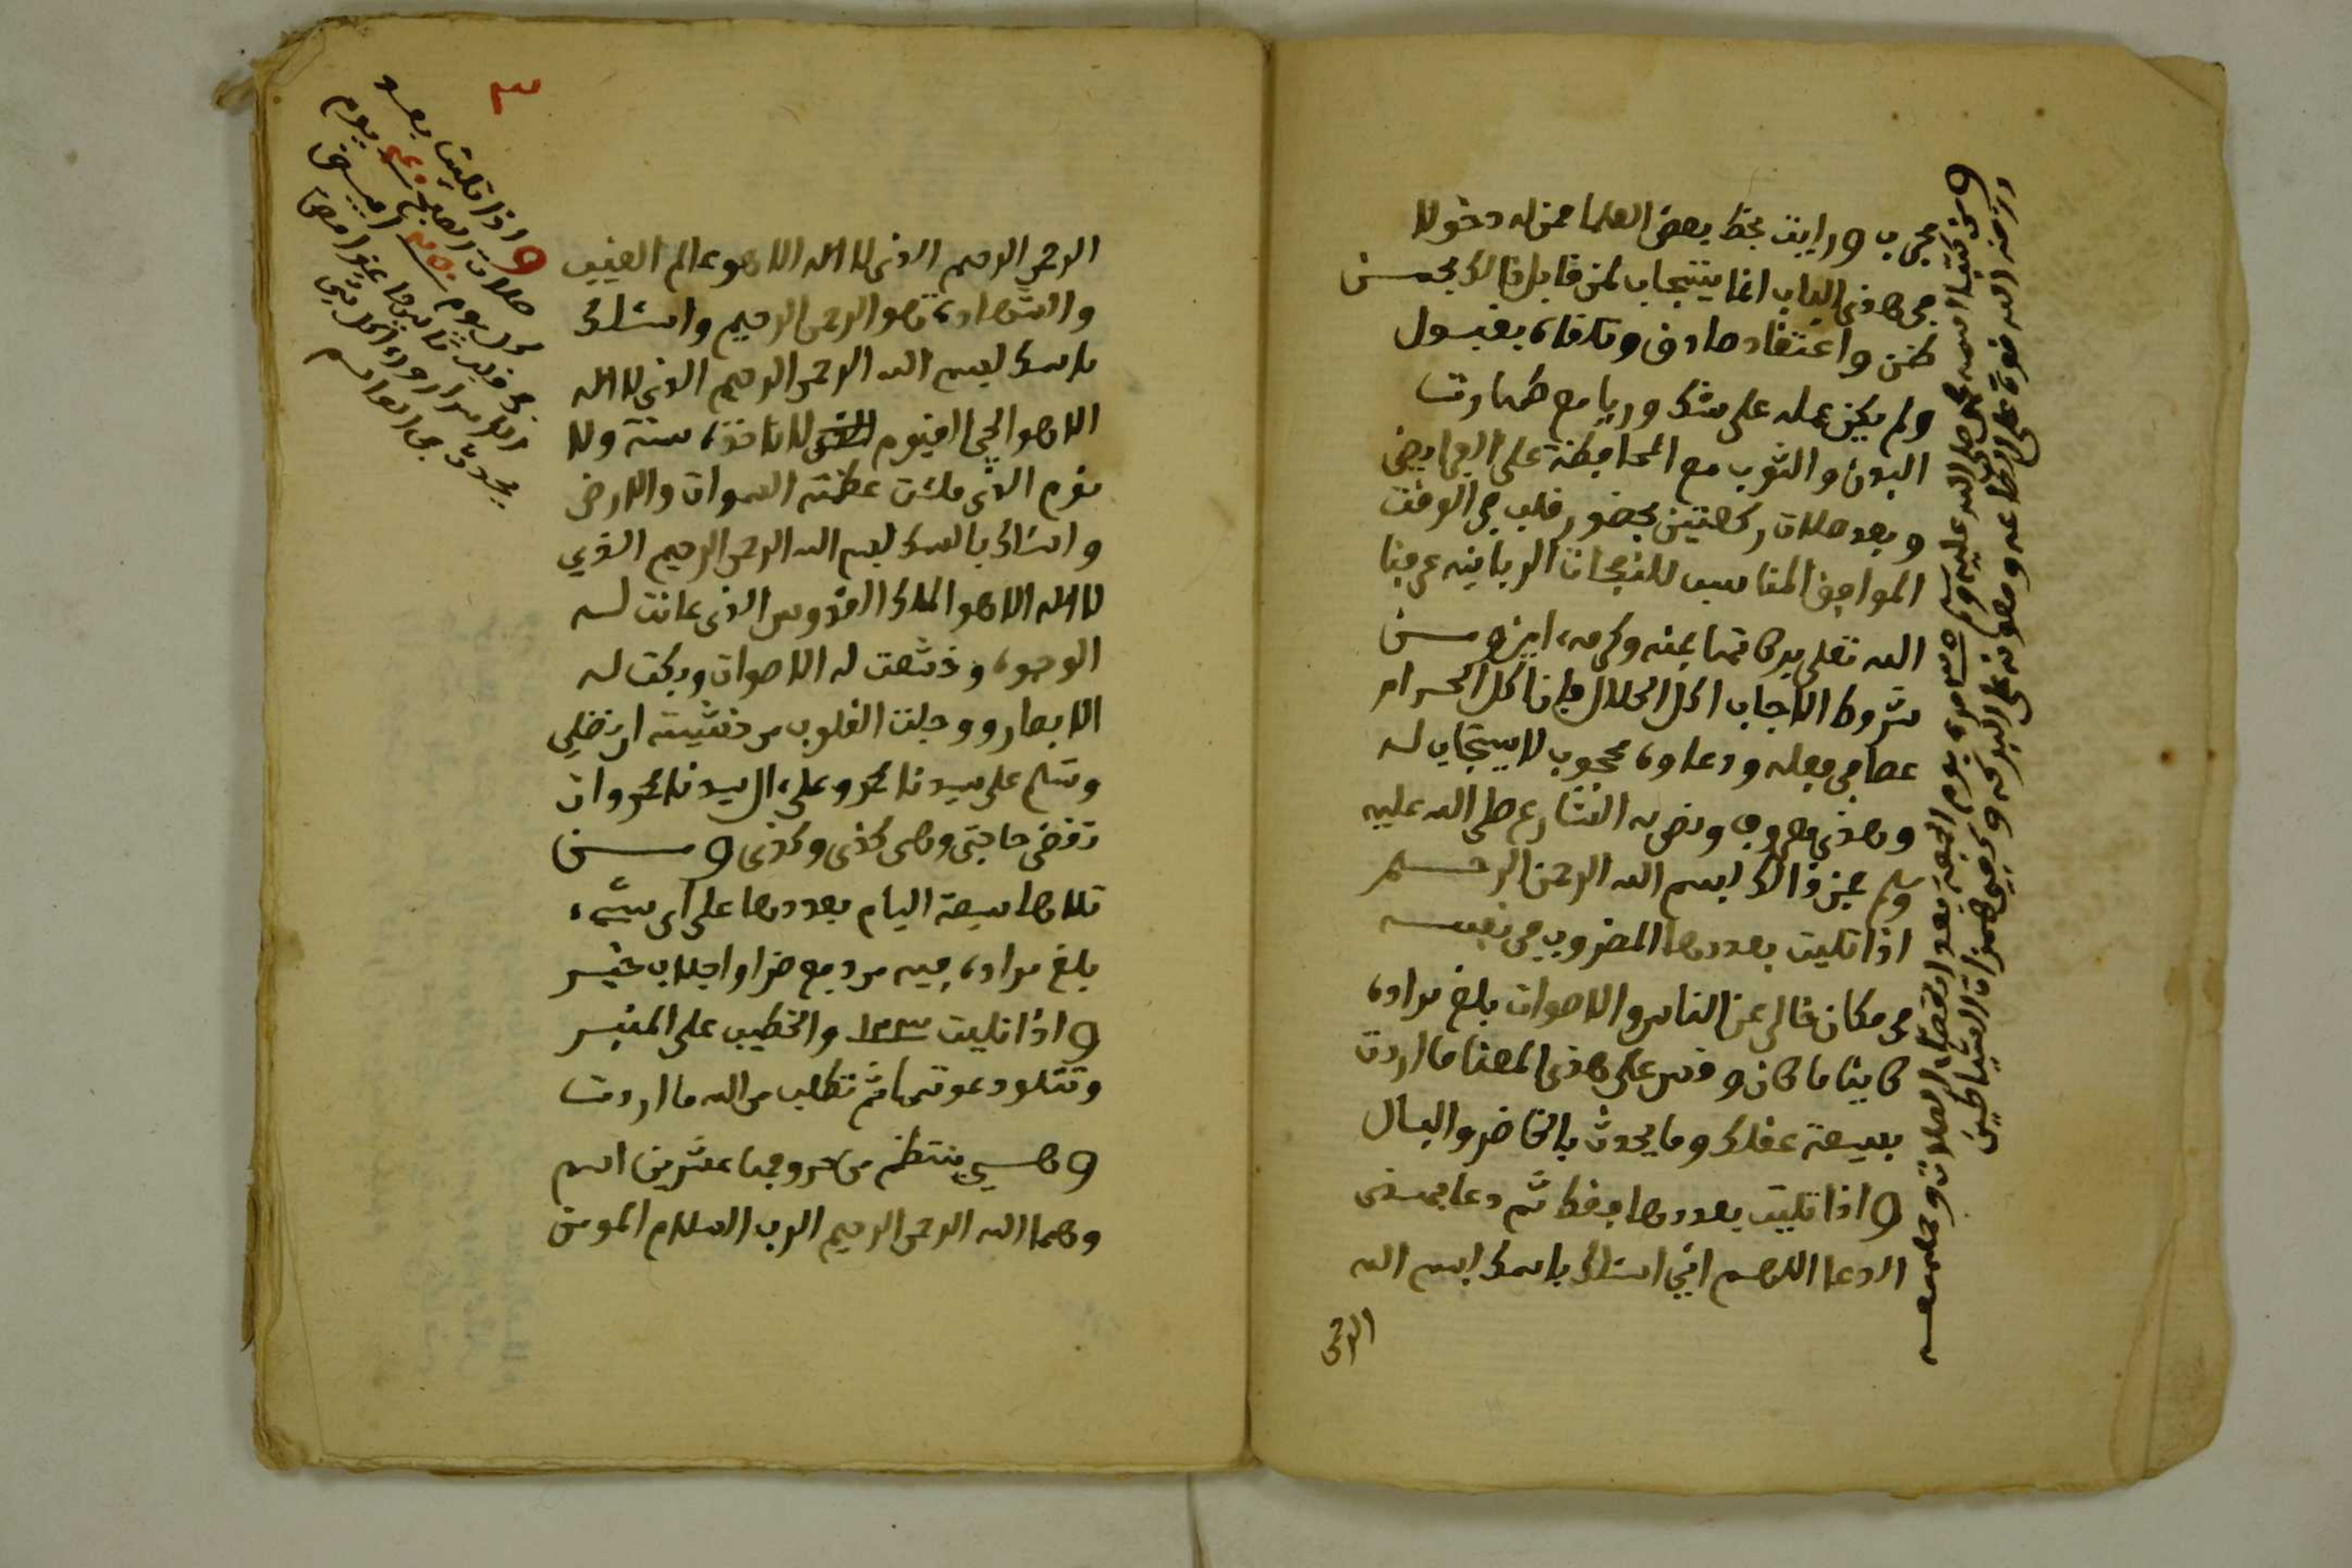 مجرب ورايت بخط بعض العلما ممن له دخولا
في هاذى الباب انما يستجاب لمن قابل ذالك بحسن
ظن واعتقاد صادق وتلقاه بقبول
ولم يكن عمله على شك وريا مع طهارت
البدن والثوب مع المحافظة على الفرايض
وبعد صلات ركعتين بحضور قلب في الوقت
الموافق المناسب للنفحات الربانيه عرفنا
الله تعلى بركاتها بمنه وكرمه امين ومن
شروط الاجاب اكل الحلال فان اكل الحرام
عصا في فعله ودعاوه محجوب لا يستجاب له
وهاذى معروف ونص به الشارع صلى الله عليه
وسلم فمن ذالك بسم الله الرحمن الرحيم
اذا تليت بعددها المضروب في نفسه
في مكان خالى عن الناس والاصوات بلغ مراده
كاينا ما كان وقس على هاذى المعنا ما اردت
بسعة عقلك وما يحدث بالخاضر والبال
واذا تليت بعددها فقط ثم دعا بهاذى
الدعا اللهم اني اسئلك باسمك بسم الله
الرحمن
ومن كتبها اسمه محمد صلى الله عليه وسلم ٣٥ مره يوم الجمعه بعد انقضاء الصلات وحمله معه
رزقه الله قوة على الطاعه ومعونه على البركه وكفي همزات الشياطين
٣
الرحمن الرحيم الذى لا اله الا هو عالم الغيب
والشهاده هو الرحمن الرحيم واسئلك
باسمك بسم الله الرحمن الرحيم الذى لا اله
الا هو الحي القيوم لا تاخذه سنة ولا
نوم الذى ملئت عظمته السموات والارض
واسئلك باسمك بسم الله الرحمن الرحيم الذي
لا اله الا هو الملك القدوس الذى عانت له
الوجوه وخشعت له الاصوات وبكت له
الابصار ووجلت القلوب من خشيته ان تصلي
وتسلم على سيدنا محمد وعلى ال سيدنا محمد وان
تقضى حاجتى وهى كذى وكذى ومن
تلاها سبعة اليام بعددها على اى شيء
بلغ مراده فيه من دفع ضرا واجلاب خير
واذا تليت ١١٣ والخطيب على المنبر
وتتلو دعوتها ثم تطلب من الله ما اردت
وهي ينتظم من حروفها عشرين اسم
وهما الله الرحمن الرحيم الرب السلام المومن
واذا تليت بعد
صلات الصبح يوم
كل يوم